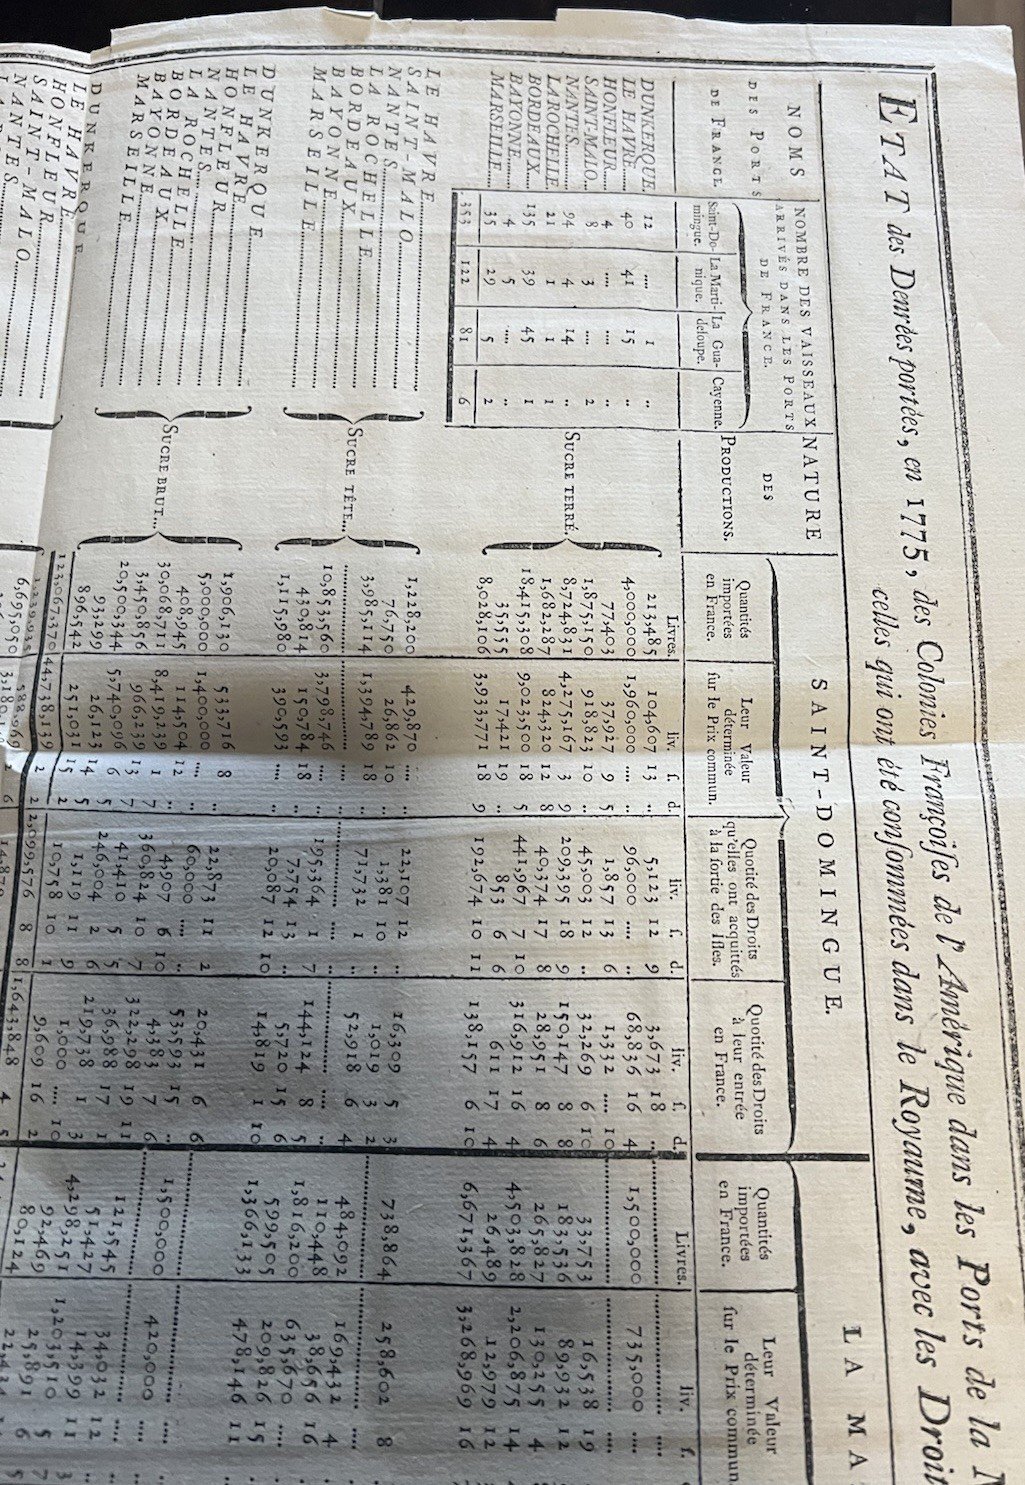 ETAT des Denrées portées, en 1775, des Colonies Françoiſes de l'Amérique dans les Ports de la
celles qui ont été conſommées dans le Royaume, avec les Droit
NOMS DES PORTS DE FRANCE
NOMBRE DES VAISSEAUX ARRIVÉS DANS LES PORTS DE FRANCE.
NATURE DES PRODUCTIONS.
SAINT-DOMINGUE.
LA MA
Saint-Domingue. La Martinique. La Guadeloupe. Cayenne.
Quantités importées en France.
Leur Valeur déterminée ſur le Prix commun.
Quotité des Droits qu'elles ont acquittés à la ſortie des Iſles.
Quotité des Droits à leur entrée en France.
Quantités importées en France.
Leur Valeur déterminée ſur le Prix commun
Livres. liv. ſ. d. liv. ſ. d. liv. ſ. d. Livres. liv. ſ.
SUCRE TERRÉ.
DUNKERQUE 12 .... 1 .. 213,485 104,607 13 .. 5,123 12 9 3,673 18 .. .... ....
LE HAVRE.... 40 41 15 .. 4,000,000 1,960,000 .... .. 96,000 .... .. 68,836 16 4 1,500,000 735,000 ....
HONFLEUR.... 4 .... .... .. 77,403 37,927 9 5 1,857 13 6 1,332 .... 10 .... ....
SAINT-MALO... 8 3 .... 2 1,875,150 918,823 10 .. 45,003 12 .. 32,269 6 10 33,753 16,538 19
NANTES...... 94 4 14 .. 8,724,831 4,275,167 3 9 209,395 18 9 150,147 8 8 183,536 89,932 12
LA ROCHELLE 21 1 1 1 1,682,287 824,320 12 8 40,374 17 8 28,951 8 6 265,827 130,255 4
BORDEAUX... 135 39 45 1 18,415,308 9,023,500 18 5 441,967 7 10 316,912 16 4 4,503,828 2,206,875 14
BAYONNE.... 4 5 .... .. 35,555 17,421 19 .. 853 6 6 611 17 4 26,489 12,979 12
MARSEILLE... 35 29 5 2 8,028,106 3,933,771 18 9 192,674 10 11 138,157 6 10 6,671,367 3,268,969 16
353 122 81 6
SUCRE TÊTE...
LE HAVRE.... 1,228,200 429,870 .... .. 22,107 12 .. 16,309 5 3 738,864 258,602 8
SAINT-MALO.... 76,750 26,862 10 .. 1,381 10 .. 1,019 3 2 ....
NANTES.... 3,985,114 1,394,789 18 .. 71,732 1 .. 52,918 6 4 484,092 169,432 4
LA ROCHELLE.... .... .... .... .... 110,448 38,656 16
BORDEAUX.... 10,853,560 3,798,746 .... .. 195,364 1 7 144,124 8 5 1,816,200 635,670 ....
BAYONNE.... 430,814 150,784 18 .. 7,754 13 .. 5,720 15 6 599,505 209,826 15
MARSEILLE.... 1,115,980 390,593 .... .. 20,087 12 10 14,819 1 10 1,366,133 478,146 11
SUCRE BRUT...
DUNKERQUE.... 1,906,130 533,716 8 .. 22,873 11 2 20,431 6 6 ....
LE HAVRE.... 5,000,000 1,400,000 .... .. 60,000 .... .. 53,593 15 .. 1,500,000 420,000 ....
HONFLEUR.... 408,945 114,504 12 .. 4,907 6 10 4,383 7 6 ....
NANTES.... 30,068,711 8,419,239 1 7 360,824 10 7 322,298 19 11 121,545 34,032 12
LA ROCHELLE.... 3,450,856 966,239 13 7 41,410 5 5 36,988 17 1 51,427 14,399 11
BORDEAUX.... 20,500,344 5,740,096 6 5 246,004 2 6 219,738 1 3 4,298,251 1,203,510 5
BAYONNE.... 93,299 26,123 14 5 1,119 11 9 1,000 .... 10 92,469 25,891 6
MARSEILLE.... 896,542 251,031 15 2 10,758 10 1 9,609 16 2 80,124
123,067,370 44,738,139 2 2 2,099,576 8 8 1,643,848 4 5
DUNKERQUE
LE HAVRE.... 6,695,050
HONFLEUR....
SAINT-MALO....
NANTES....